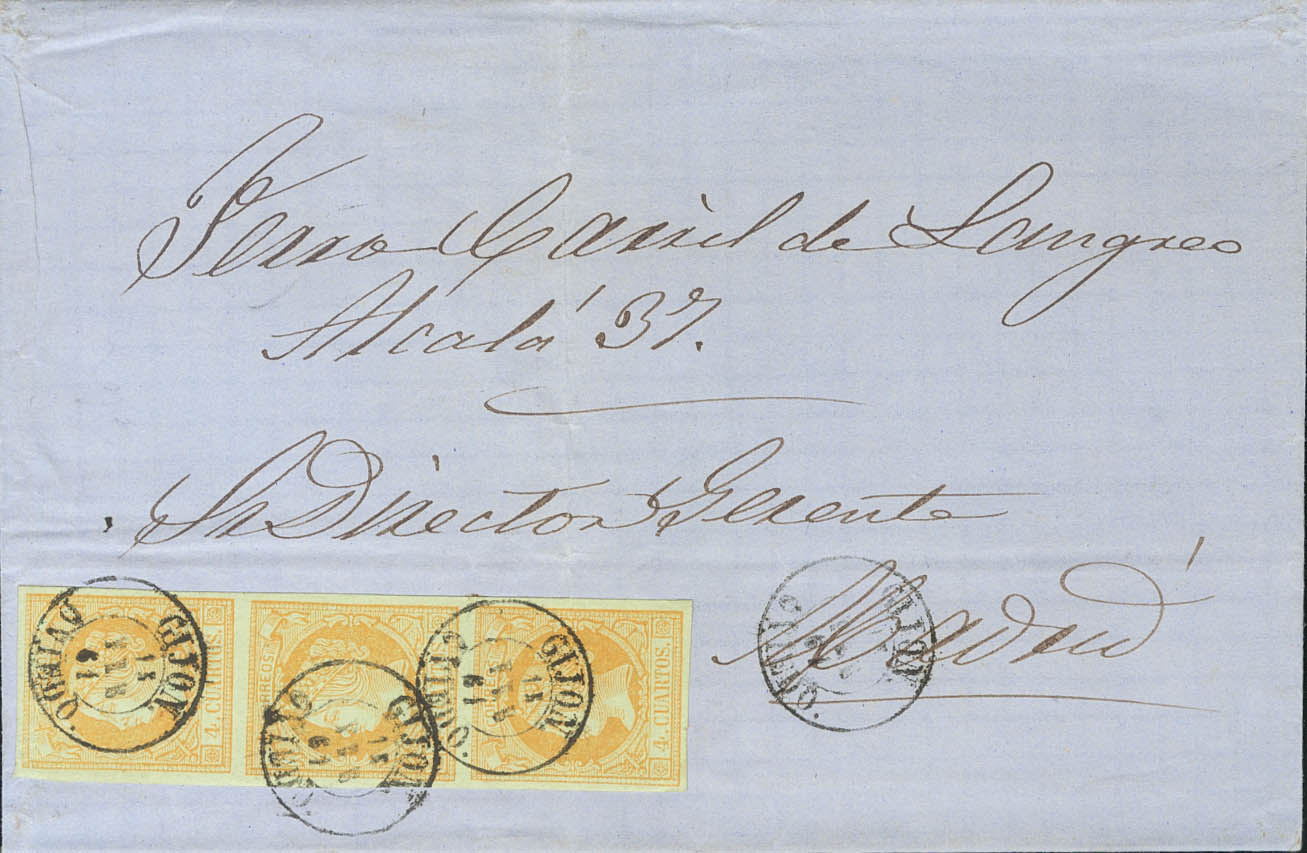 Ferro Carril de Langreo
Alcalá 37.
Sr Director Gerente
Madrid
GIJON
15 FEB 61
OVIEDO.
CORREOS
4. CUARTOS.
GIJON
15 FEB 61
OVIEDO.
GIJON
15 FEB 61
OVIEDO.
4. CUARTOS.
GIJON
OVIEDO.